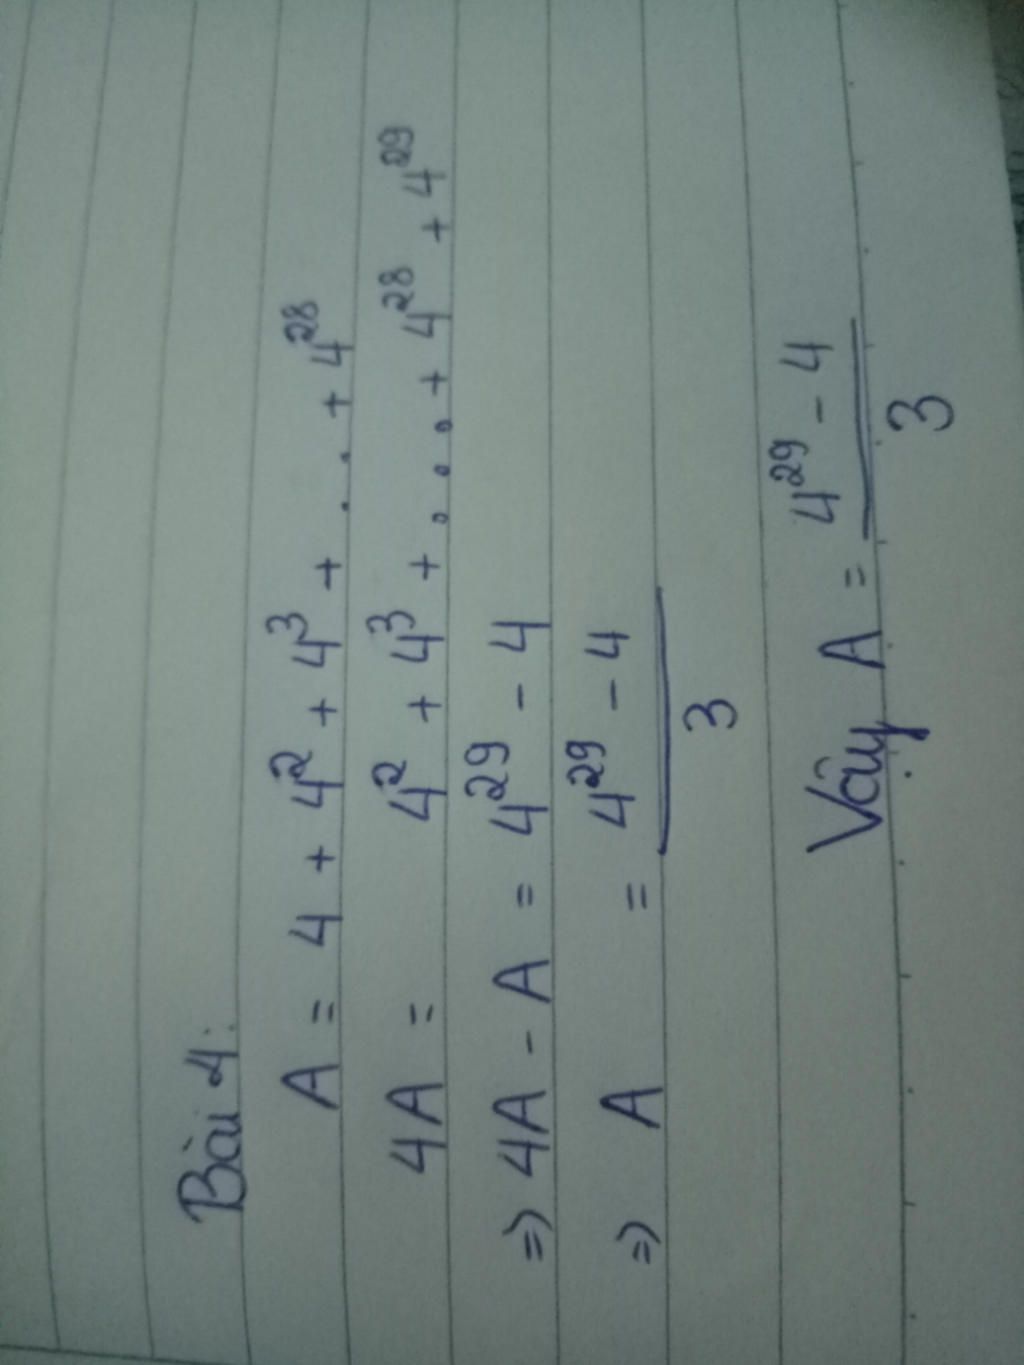 Bài 4:
A = 4 + 4² + 4³ + . . . + 4²⁸
4A = 4² + 4³ + . . . . + 4²⁸ + 4²⁹
=> 4A - A = 4²⁹ - 4
=> A = 4²⁹ - 4
3
Vậy A = 4²⁹ - 4
3